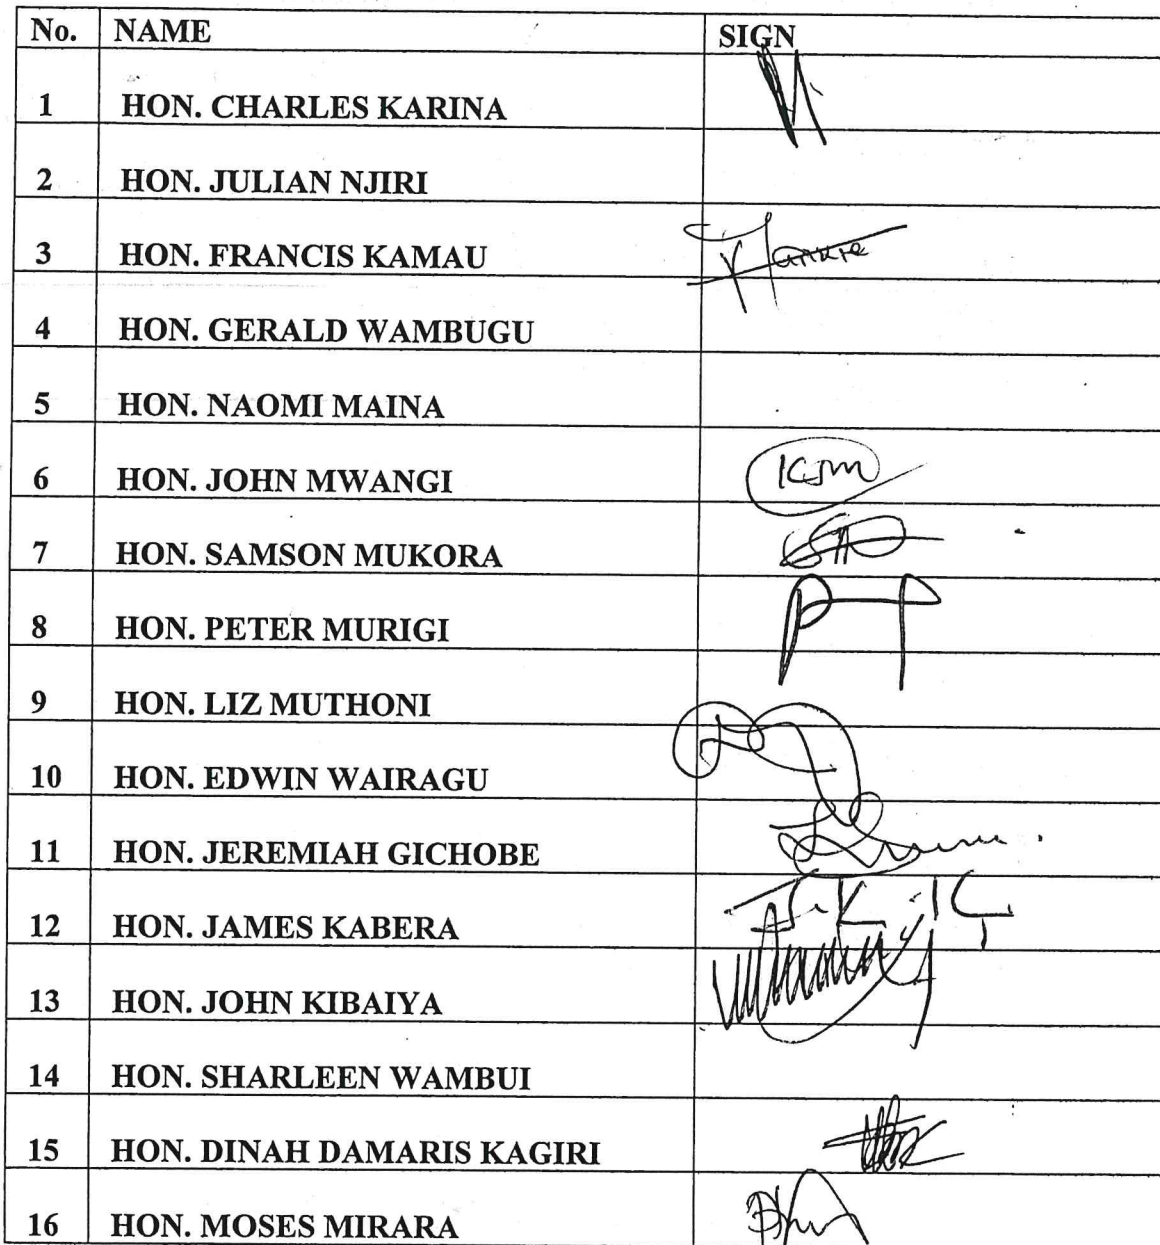 No. NAME SIGN
1 HON. CHARLES KARINA
2 HON. JULIAN NJIRI
3 HON. FRANCIS KAMAU
4 HON. GERALD WAMBUGU
5 HON. NAOMI MAINA
6 HON. JOHN MWANGI
7 HON. SAMSON MUKORA
8 HON. PETER MURIGI
9 HON. LIZ MUTHONI
10 HON. EDWIN WAIRAGU
11 HON. JEREMIAH GICHOBE
12 HON. JAMES KABERA
13 HON. JOHN KIBAIYA
14 HON. SHARLEEN WAMBUI
15 HON. DINAH DAMARIS KAGIRI
16 HON. MOSES MIRARA